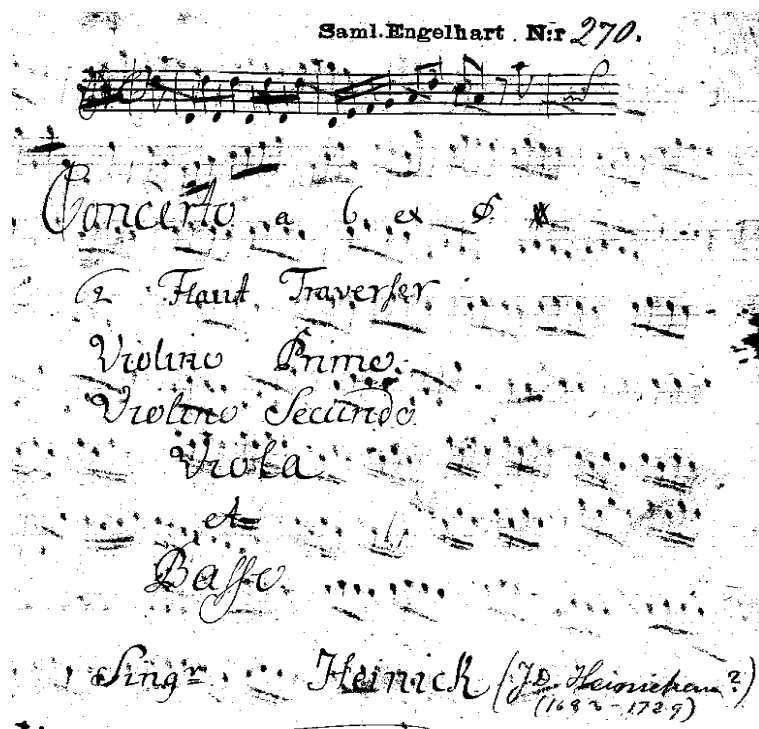 Saml. Engelhart. N:r 270.
Concerto a 6. ex
2 Flaut Traverser
Violino Primo.
Violino Secundo
Viola
et
Basso.
Sing:r Heinick (J.D. Heinichen?)
(1683-1729)